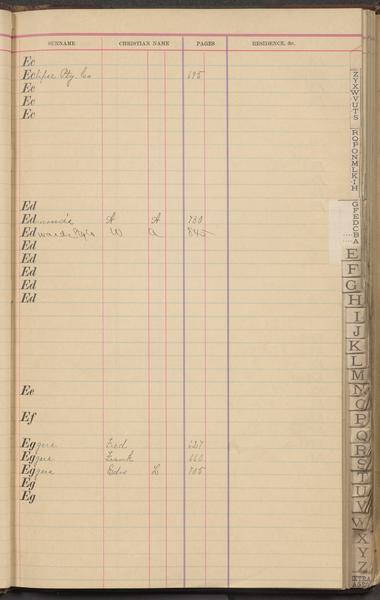 SURNAME CHRISTIAN NAME PAGES RESIDENCE, &c.
Ec
Eclipse Ptg. Co 695
Ec
Ec
Ec
Ed
Edmonds A A 730
Edwards W A 845
Ed
Ed
Ed
Ed
Ed
Ee
Ef
Eggers Fred 627
Eggers Frank 660
Eggers Edw L 705
Eg
Eg
Z Y X W V U T S
R Q P O N M L K I H
G F E D C B A
E
F
G
H
I
J
K
L
M
N
O
P
Q
R
S
T
U
V
W
X
Y
Z
EXTRA